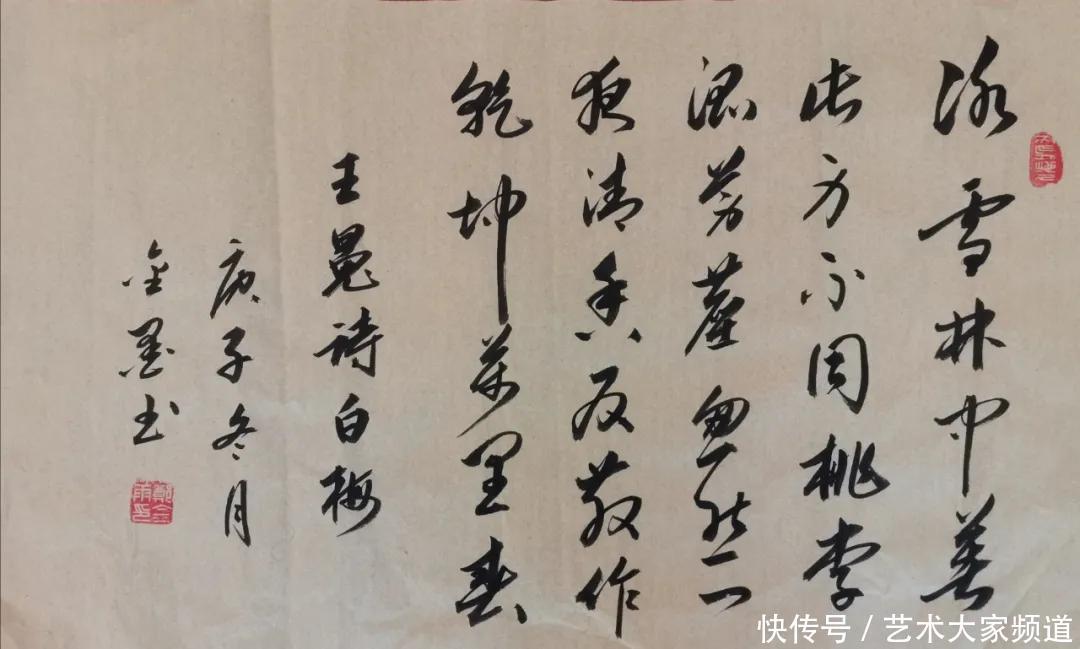 冰雪林中著
此身不同桃李
混芳塵忽然一
夜清香发散作
乾坤萬里春
王冕诗白梅
庚子冬月
金墨书
快传号 / 艺术大家频道